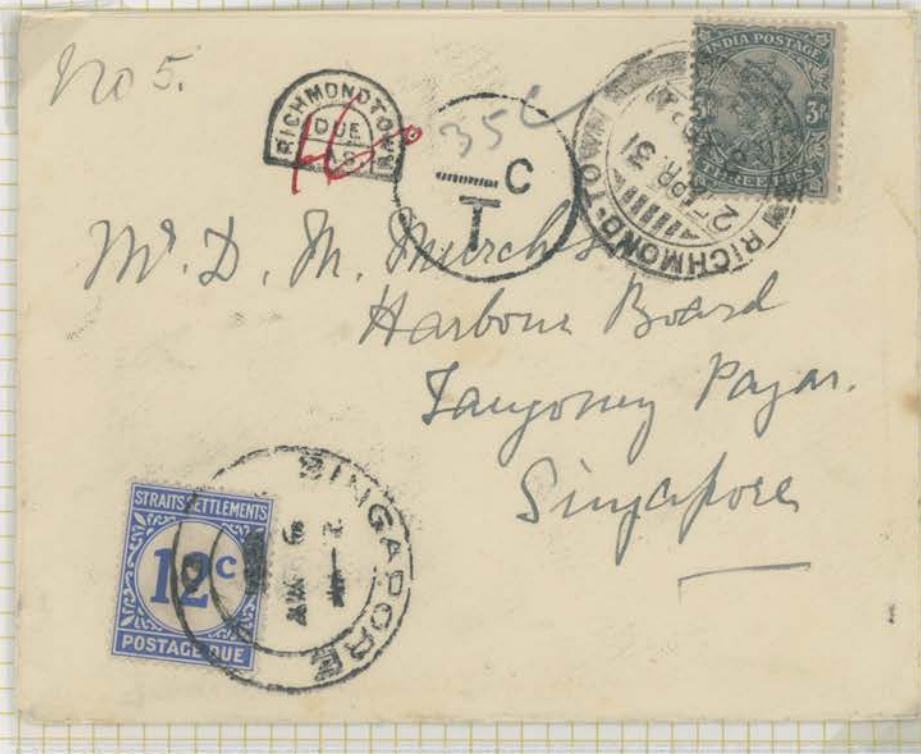 No 5.
RICHMOND TOWN
DUE
AS.
35 c
C
T
INDIA POSTAGE
3
THREE PIES
RICHMOND-TOWN
APR. 31
Mr. D. M.
Harbour Board
Tanyong Pagar.
Singapore
SINGAPORE
STRAITS SETTLEMENTS
12c
POSTAGE DUE